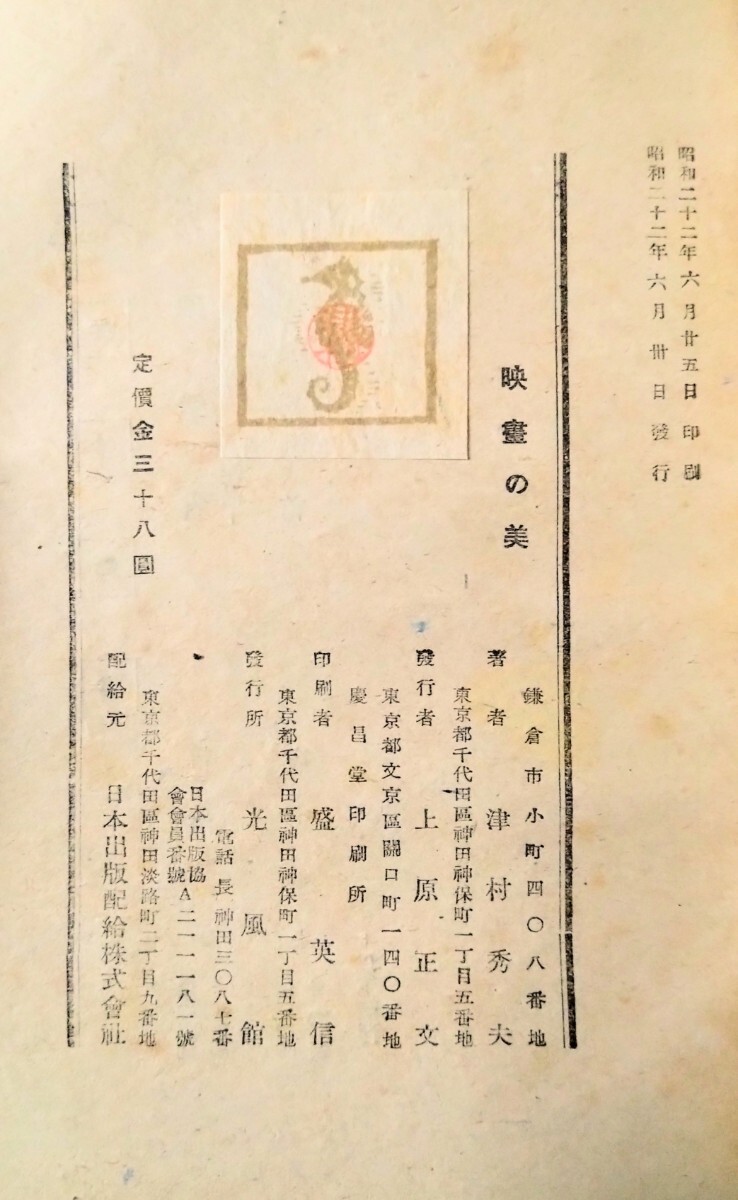 昭和二十二年六月廿五日印刷
昭和二十二年六月卅日發行
映畫の美
定價金三十八圓
鎌倉市小町四〇八番地
著者 津村秀夫
東京都千代田區神田神保町一丁目五番地
發行者 上原正文
東京都文京區關口町一四〇番地
慶昌堂印刷所
印刷者 盛英信
東京都千代田區神田神保町一丁目五番地
發行所 光風館
電話長神田三〇八七番
日本出版協
會會員番號 A二一一一八一號
東京都千代田區神田淡路町二丁目九番地
配給元 日本出版配給株式會社